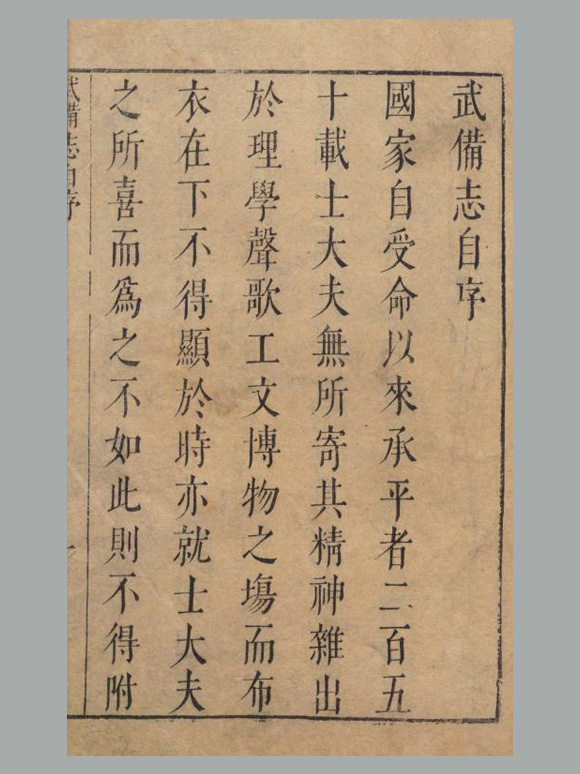 武備志自序
國家自受命以來承平者二百五
十載士大夫無所寄其精神雜出
於理學聲歌工文博物之塲而布
衣在下不得顯於時亦就士大夫
之所喜而爲之不如此則不得附
武備志自序
一